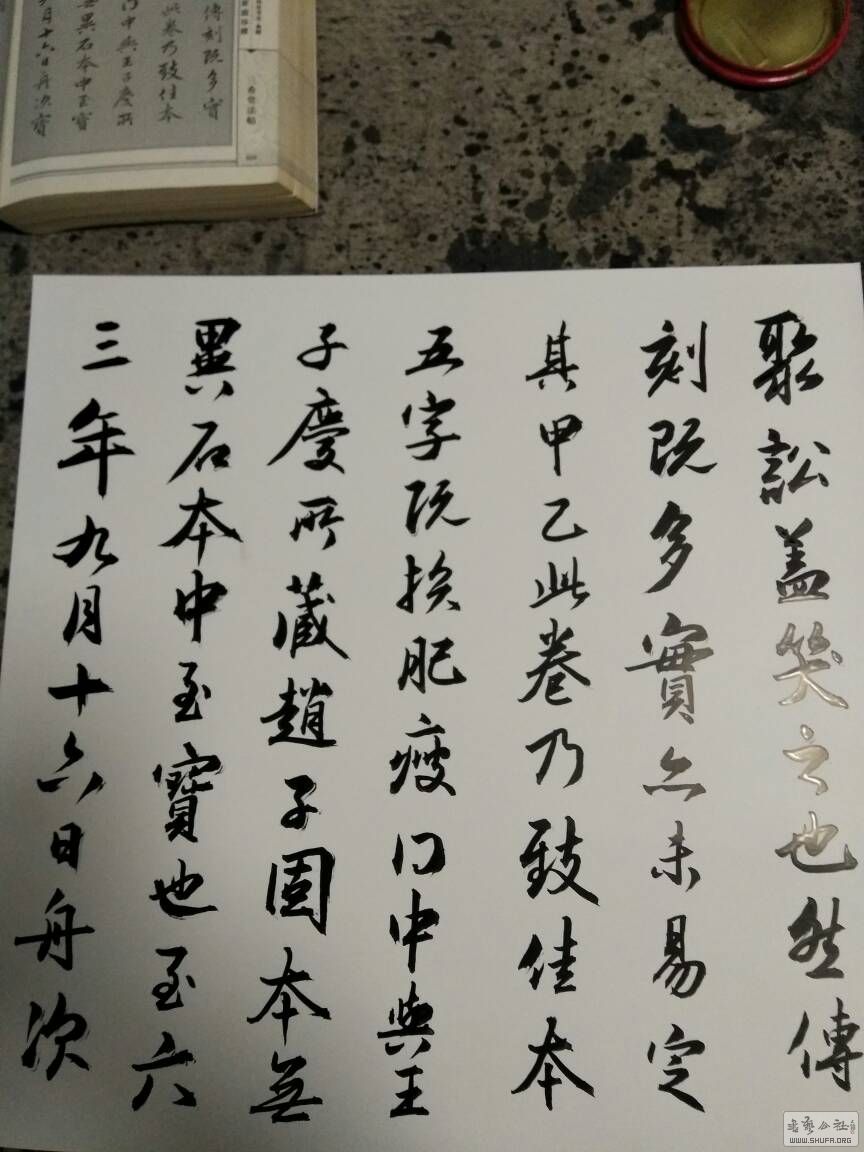 三希堂法帖
傳刻既多實
此卷乃致佳本
得中與王子慶所
異石本中至寶
月十六日舟次寶
聚訟盖笑之也然傳
刻既多實亦未易定
其甲乙此卷乃致佳本
五字既損肥瘦得中與王
子慶所藏趙子固本無
異石本中至寶也至六
三年九月十六日舟次
書藝公社
WWW.SHUFA.ORG